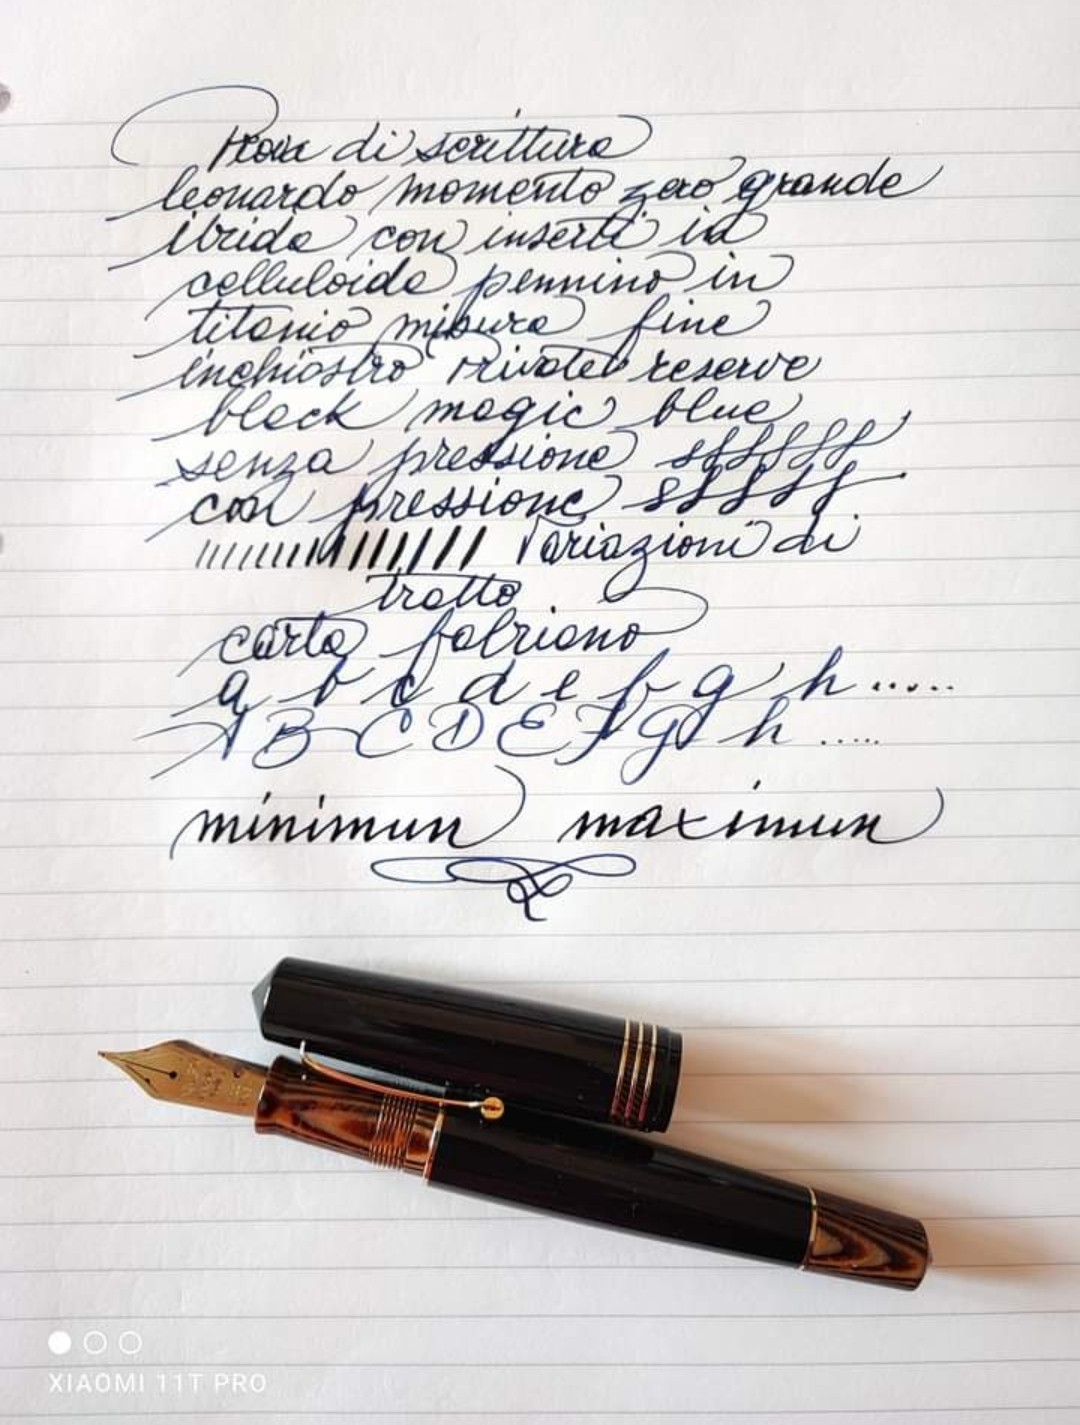 Prova di scrittura
leonardo momento zero grande
ibrida con inserti in
celluloide pennino in
titanio misura fine
inchiostro private reserve
black magic blue
senza pressione sffffff
con pressione sfffff
Variazioni di
tratto
carta fabriano
a b c d e f g h .....
A B C D E F G h .....
minimun maximun
XIAOMI 11T PRO